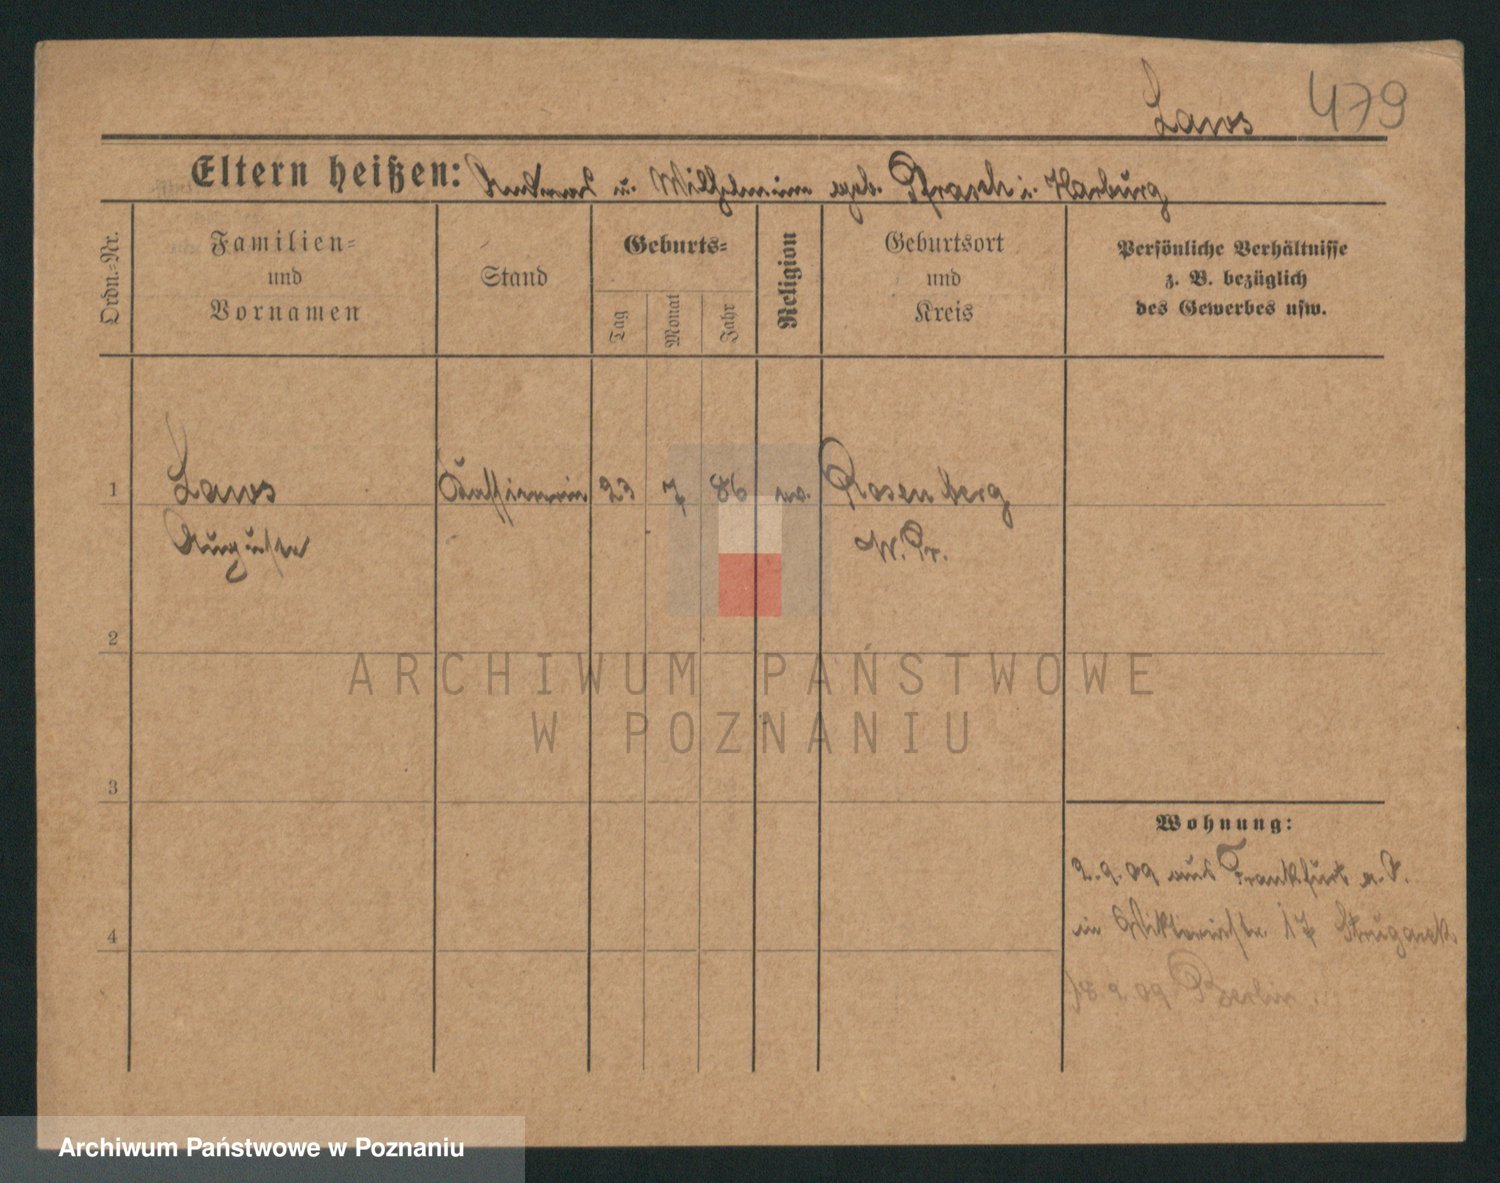 479
Laws
Eltern heißen: u. Wilhelmine geb. i. Harburg
Ordn.-Nr.
Familien-
und
Vornamen
Stand
Geburts-
Tag
Monat
Jahr
Religion
Geburtsort
und
Kreis
Persönliche Verhältnisse
z. B. bezüglich
des Gewerbes usw.
1
Laws
Kassiererin
23
7
86
ev.
Rosenberg
Auguste
W. Pr.
2
ARCHIWUM PAŃSTWOWE
W POZNANIU
3
Wohnung:
2.9.09 aus Frankfurt a. O.
in Viktoriastr. 17
4
18 9 09 Berlin
Archiwum Państwowe w Poznaniu